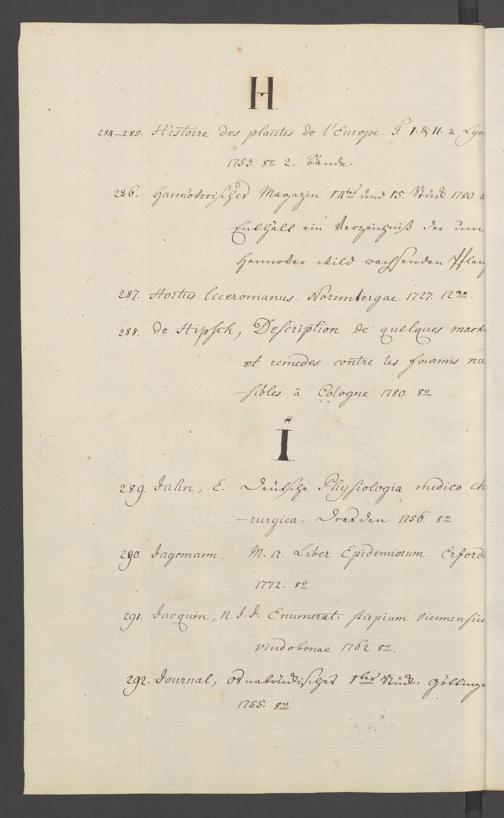 H
284-285. Histoire des plantes de l'Europe. T. I. & II. a Lyo
1753. 8º 2. bände.
286. Hannöverisches Magazin 14tes und 15. Stück 1780.
Enthält ein Verzeichniß der um
Hannover wild wachsenden Pflan
287. Hortus liceromanus. Norimbergae 1727. 12
288. de Hüpsch, Description de quelques mach
et remedes contre les fourmis nu
-sibles à Cologne 1780. 8º
I
289. Jahn, E. Deutsche Physiologia medico ch
-rurgica. Dresden 1756. 8º
290. Jagemann, M. A. Liber Epidemiorum. Erford
1772. 8º
291. Jacquin, N. J. Enumerat. stirpium viennensiu
vindobonae 1762 8º.
292. Journal, osnabrückisches 1tes Stück. Götting
1755. 8º